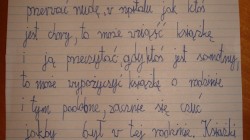 przerwać nudę, w szpitalu jak ktoś
jest chory, to może wziąść książkę
i ją przeczytać, gdy ktoś jest samotny,
to może wypożyczyć książkę o rodzinie
i tym podobne, zacznie się czuć
jakby był w tej rodzinie. Książki